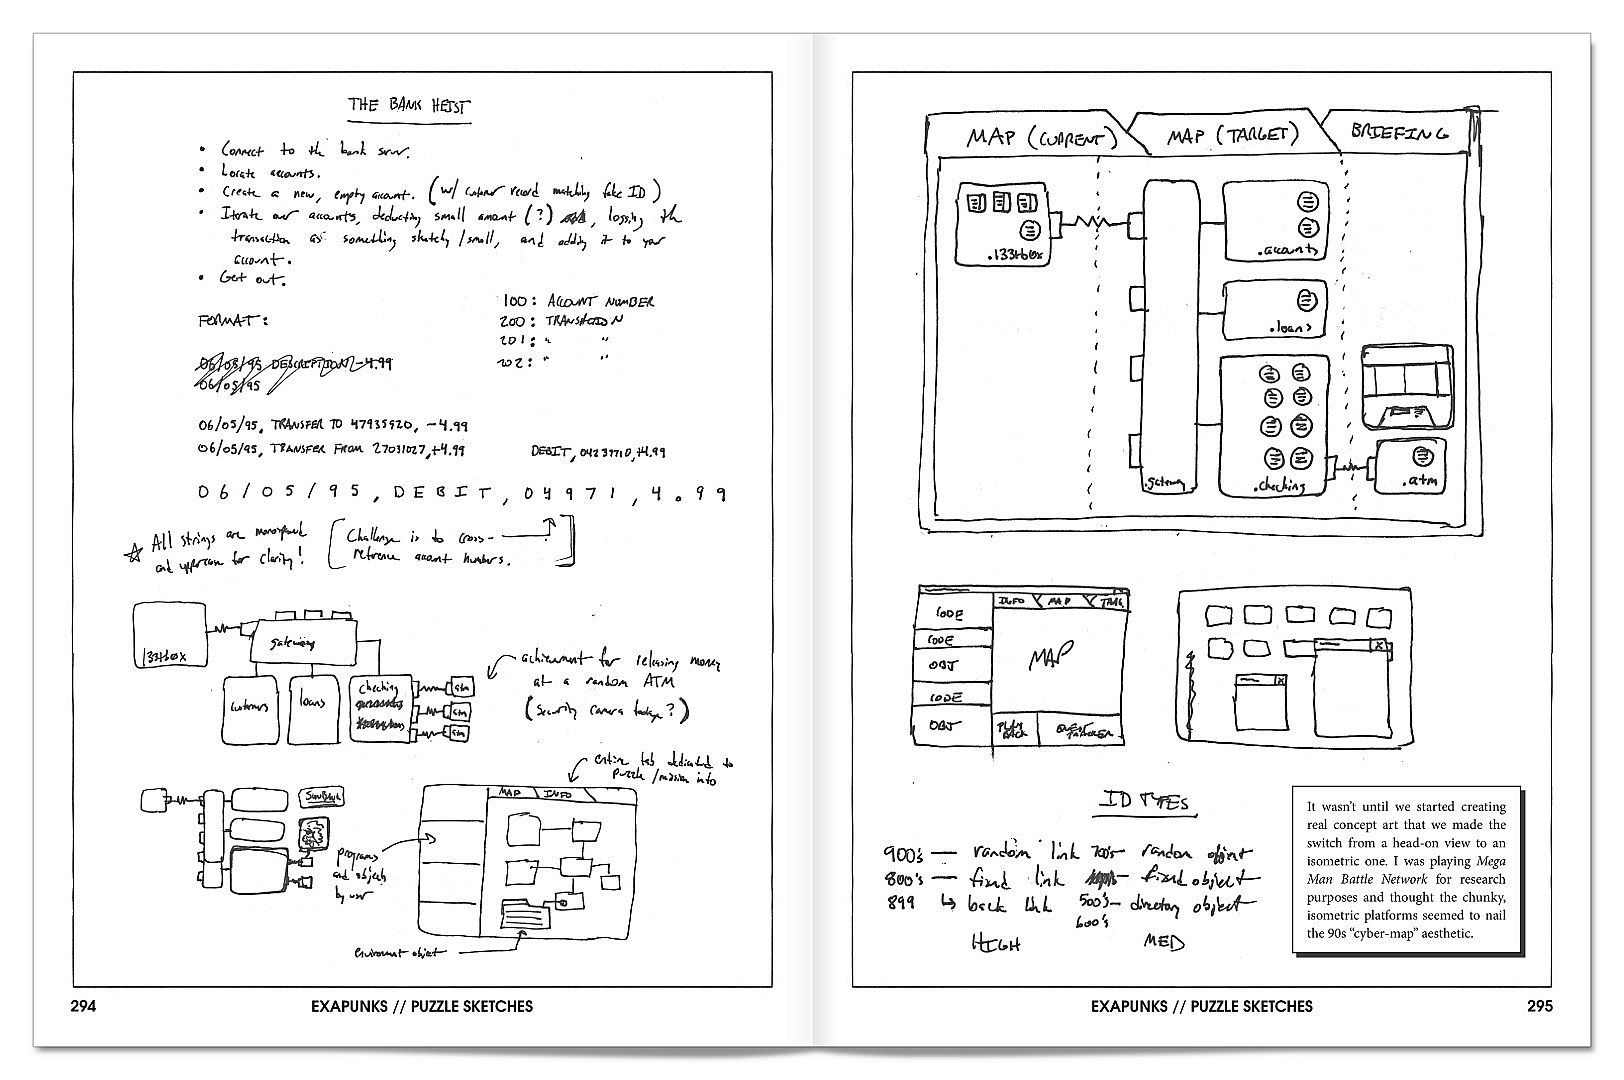 THE BANK HEIST
• Connect to the bank server.
• Locate accounts.
• Create a new, empty account. (w/ customer record matching fake ID)
• Iterate over accounts, deducting small amount (?) , logging the
transaction as something sketchy/small, and adding it to your
account.
• Get out.
100: ACCOUNT NUMBER
FORMAT:
200: TRANSACTION
201: " "
06/05/95 DESCRIPTION -4.99
202: " "
06/05/95
06/05/95, TRANSFER TO 47935920, -4.99
06/05/95, TRANSFER FROM 27031027, +4.99
DEBIT, 04239710, +4.99
06/05/95, DEBIT, 04971, 4.99
☆ All strings are monospaced
and uppercase for clarity!
[Challenge is to cross-
reference account numbers.]
133tbox
gateway
customers
loans
checking
atm
atm
atm
achievement for releasing money
at a random ATM
(security camera footage?)
entire tab dedicated to
puzzle/mission info
MAP
INFO
programs
and objects
by user
environment object
294
EXAPUNKS // PUZZLE SKETCHES
MAP (CURRENT)
MAP (TARGET)
BRIEFING
.133tbox
.accounts
.loans
.gateway
.checking
.atm
CODE
CODE
OBJ
CODE
OBJ
INFO
MAP
MAP
PLAY
BACK
X
X
ID TYPES
900's — random link
700's random object
800's — fixed link
— fixed object
899 ↳ back link
500's— directory object
600's
HIGH
MED
It wasn't until we started creating
real concept art that we made the
switch from a head-on view to an
isometric one. I was playing Mega
Man Battle Network for research
purposes and thought the chunky,
isometric platforms seemed to nail
the 90s “cyber-map” aesthetic.
EXAPUNKS // PUZZLE SKETCHES
295